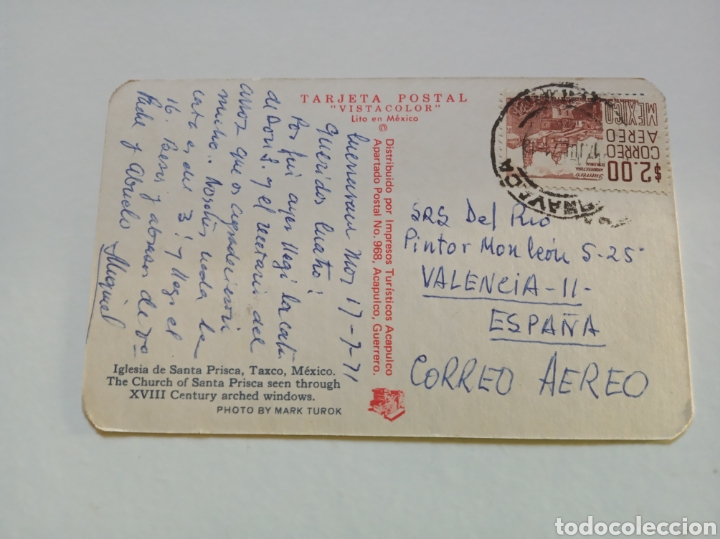 TARJETA POSTAL
"VISTACOLOR"
Lito en México
©
Distribuido por Impresos Turísticos Acapulco
Apartado Postal No. 968, Acapulco, Guerrero.
17-7-71
Queridos cuatro:
Por fin ayer llegó la carta
de Don
y el
del
arroz que os
mucho. Nosotros
la
carta es del 3! y llegó el
16. Besos y abrazos de vo
Padre y Abuelo
Miguel
Iglesia de Santa Prisca, Taxco, México.
The Church of Santa Prisca seen through
XVIII Century arched windows.
PHOTO BY MARK TUROK
MEXICO
CORREO
AEREO
$2.00
SRS Del Rio
Pintor Monleón 5-25
VALENCIA-11-
ESPAÑA
CORREO AEREO
todocoleccion